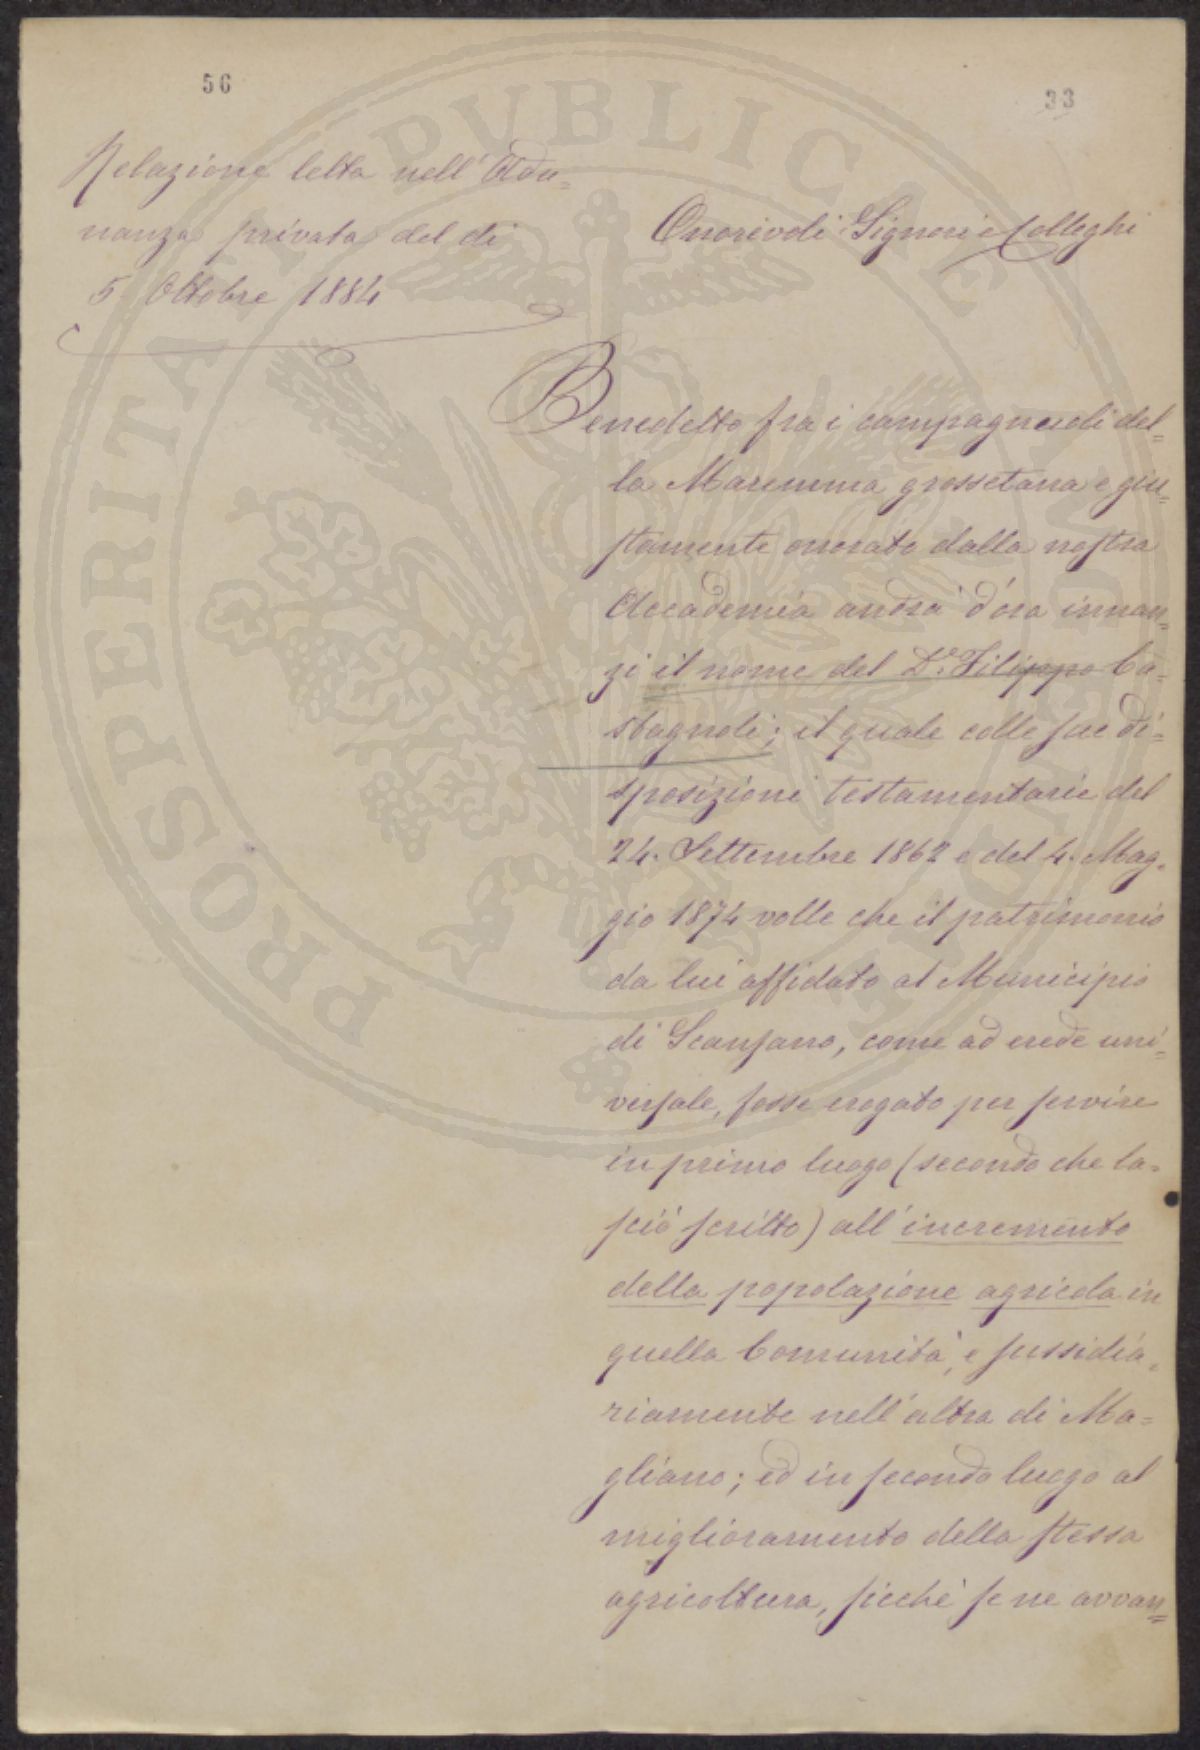 56
33
Relazione letta nell'Adu=
nanza privata del dì
5. Ottobre 1884
Onorevoli Signori e Colleghi
Benedetto fra i campagnuoli del=
la Maremma grossetana e giu=
stamente onorato dalla nostra
Accademia andrà d'ora innan=
zi il nome del Dr. Filippo Ca=
stagnoli; il quale colle sue di=
sposizioni testamentarie del
24. Settembre 1862 e del 4. Mag=
gio 1874 volle che il patrimonio
da lui affidato al Municipio
di Scansano, come ad erede uni=
versale, fosse erogato per servire
in primo luogo (secondo che la=
sciò scritto) all'incremento
della popolazione agricola in
quella Comunità, e sussidia=
riamente nell'altra di Ma=
gliano; ed in secondo luogo al
miglioramento della stessa
agricoltura, sicchè se ne avvan=
PROSPERITATI PUBLICAE AUGENDAE